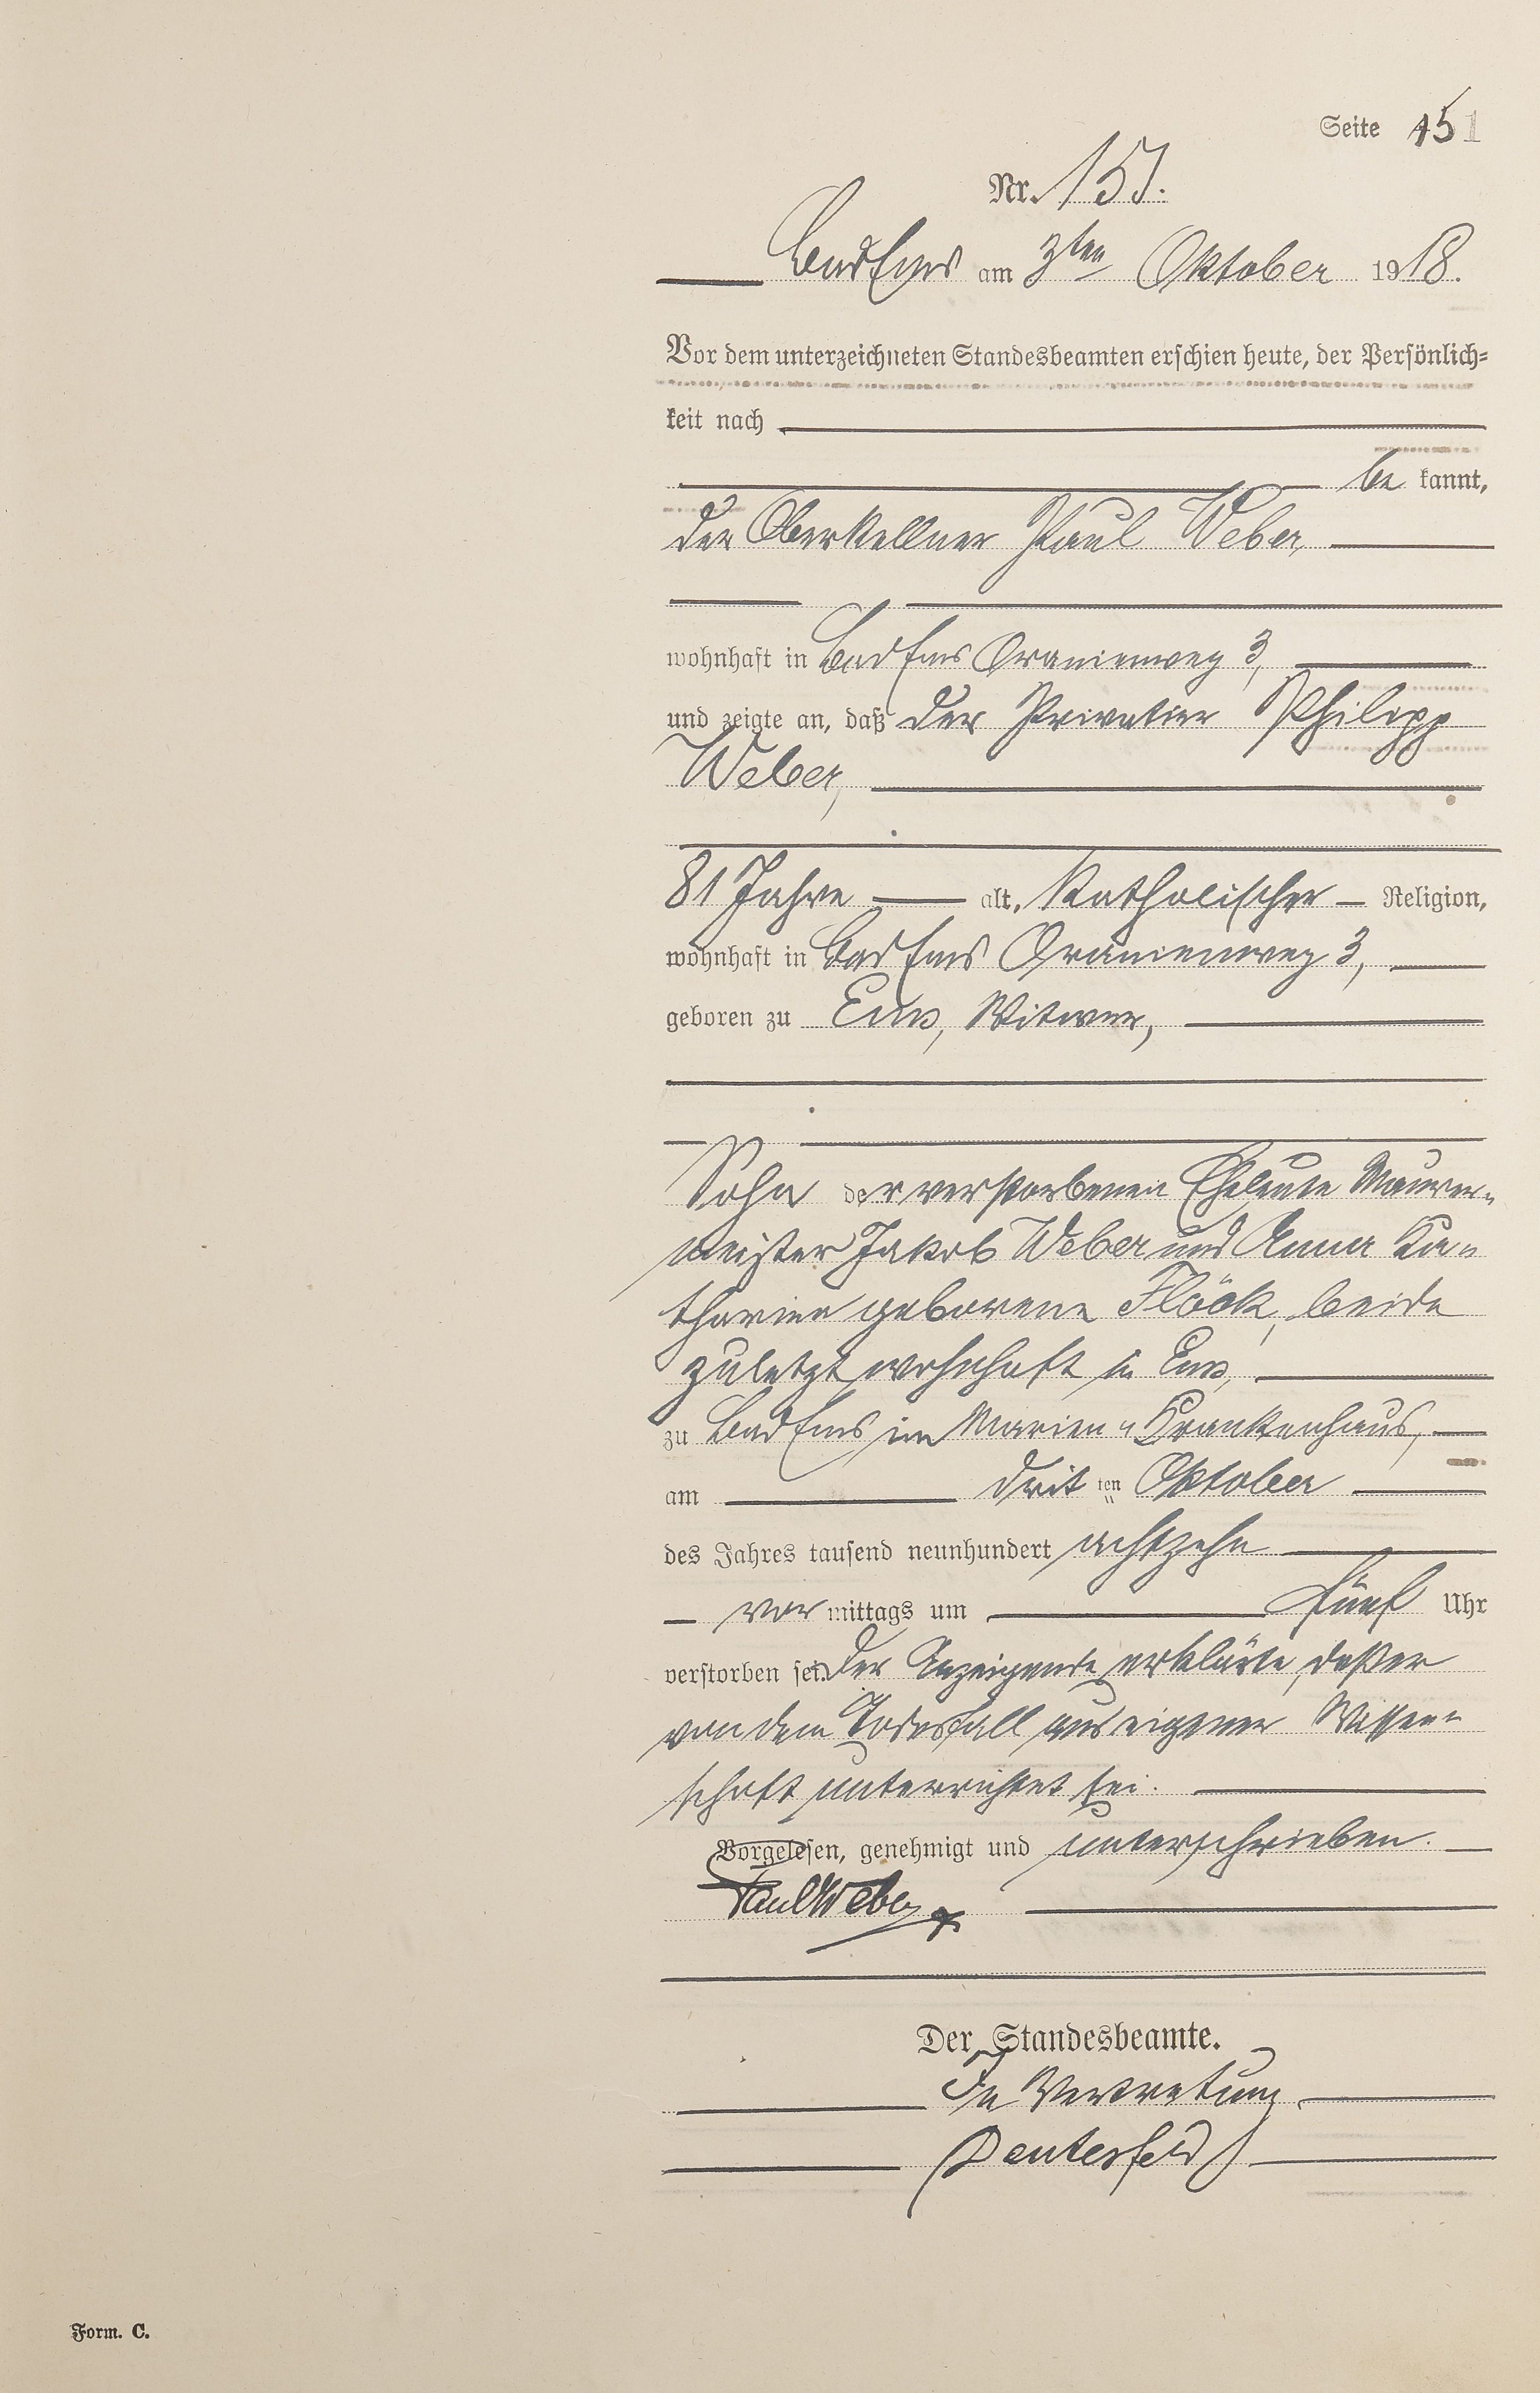 Seite 151
Nr. 151.
Bad Ems am 3ten Oktober 1918.
Vor dem unterzeichneten Standesbeamten erschien heute, der Persönlich-
keit nach
be kannt,
der Oberkellner Paul Weber,
wohnhaft in Bad Ems Oranienweg 3,
und zeigte an, daß der Privatier Philipp
Weber,
81 Jahre alt, Katholischer Religion,
wohnhaft in Bad Ems Oranienweg 3,
geboren zu Ems, Witwer,
Sohn der verstorbenen Eheleute Maurer-
meister Jakob Weber und Anna Ka-
tharina geborene Flöck, beide
zuletzt wohnhaft in Ems,
zu Bad Ems im Marien-Krankenhaus,
am dritten Oktober
des Jahres tausend neunhundert achtzehn
vor mittags um fünf Uhr
verstorben sei. Der Anzeigende erklärte, daß er
von dem Todesfall aus eigener Wissen-
schaft unterrichtet sei.
Vorgelesen, genehmigt und unterschrieben.
Paul Weber
Der Standesbeamte.
In Vertretung
Form. C.